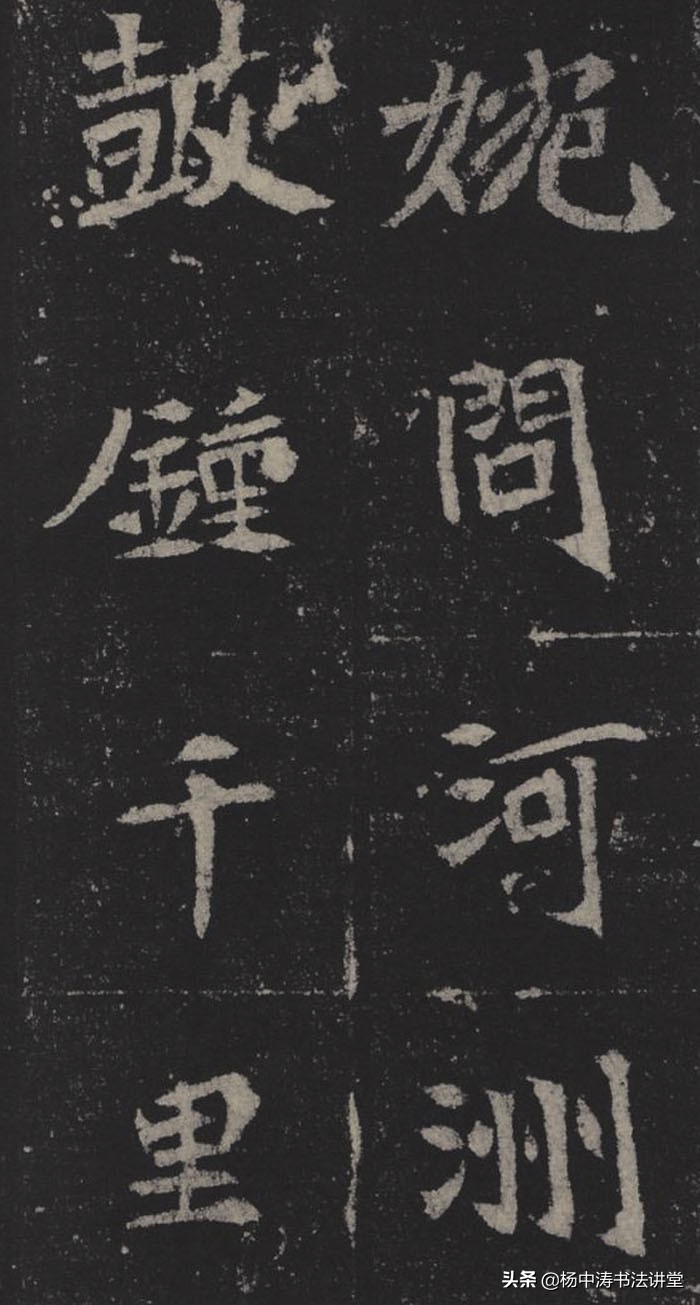 婉問河洲
鼓鍾千里
头条 @杨中涛书法讲堂